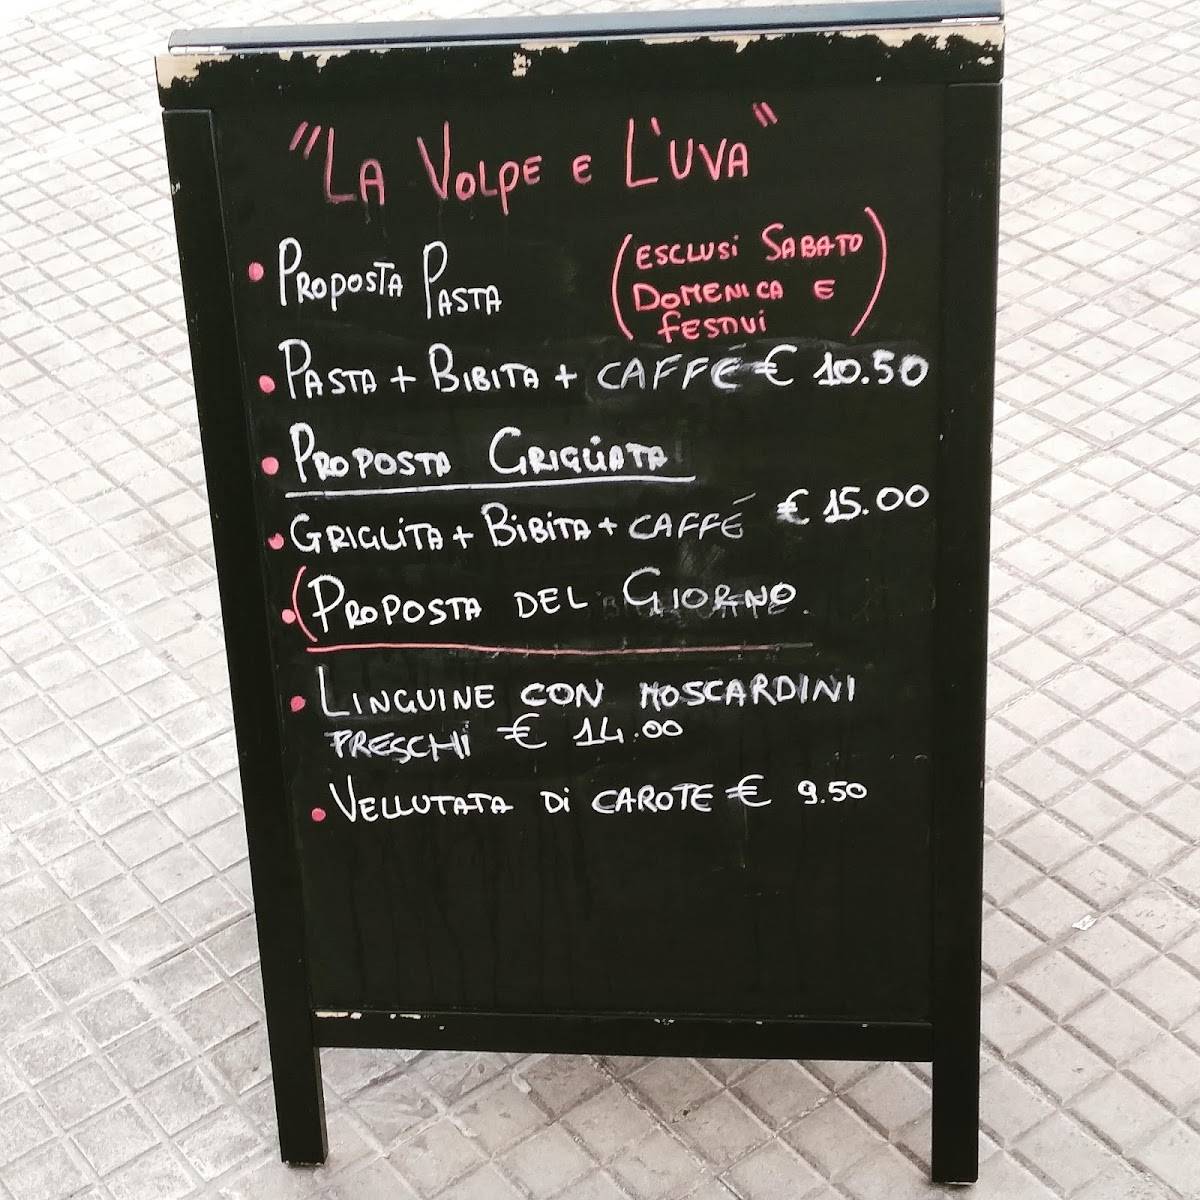 "LA VOLPE E L'UVA"
PROPOSTA PASTA
(ESCLUSI SABATO
DOMENICA E
FESTIVI)
PASTA + BIBITA + CAFFÉ € 10.50
PROPOSTA GRIGLIATA
GRIGLITA + BIBITA + CAFFÉ € 15.00
(PROPOSTA DEL GIORNO.
LINGUINE CON MOSCARDINI
FRESCHI € 14.00
VELLUTATA DI CAROTE € 9.50